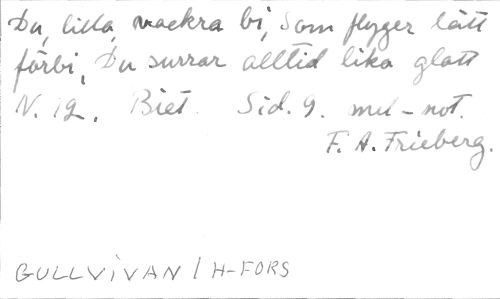 Du, lilla, vackra bi, Som flyger lätt
förbi, Du surrar alltid lika glatt
N. 12. Biet. Sid. 9. mel-not.
F. A. Frieberg.
GULLVIVAN / H-FORS